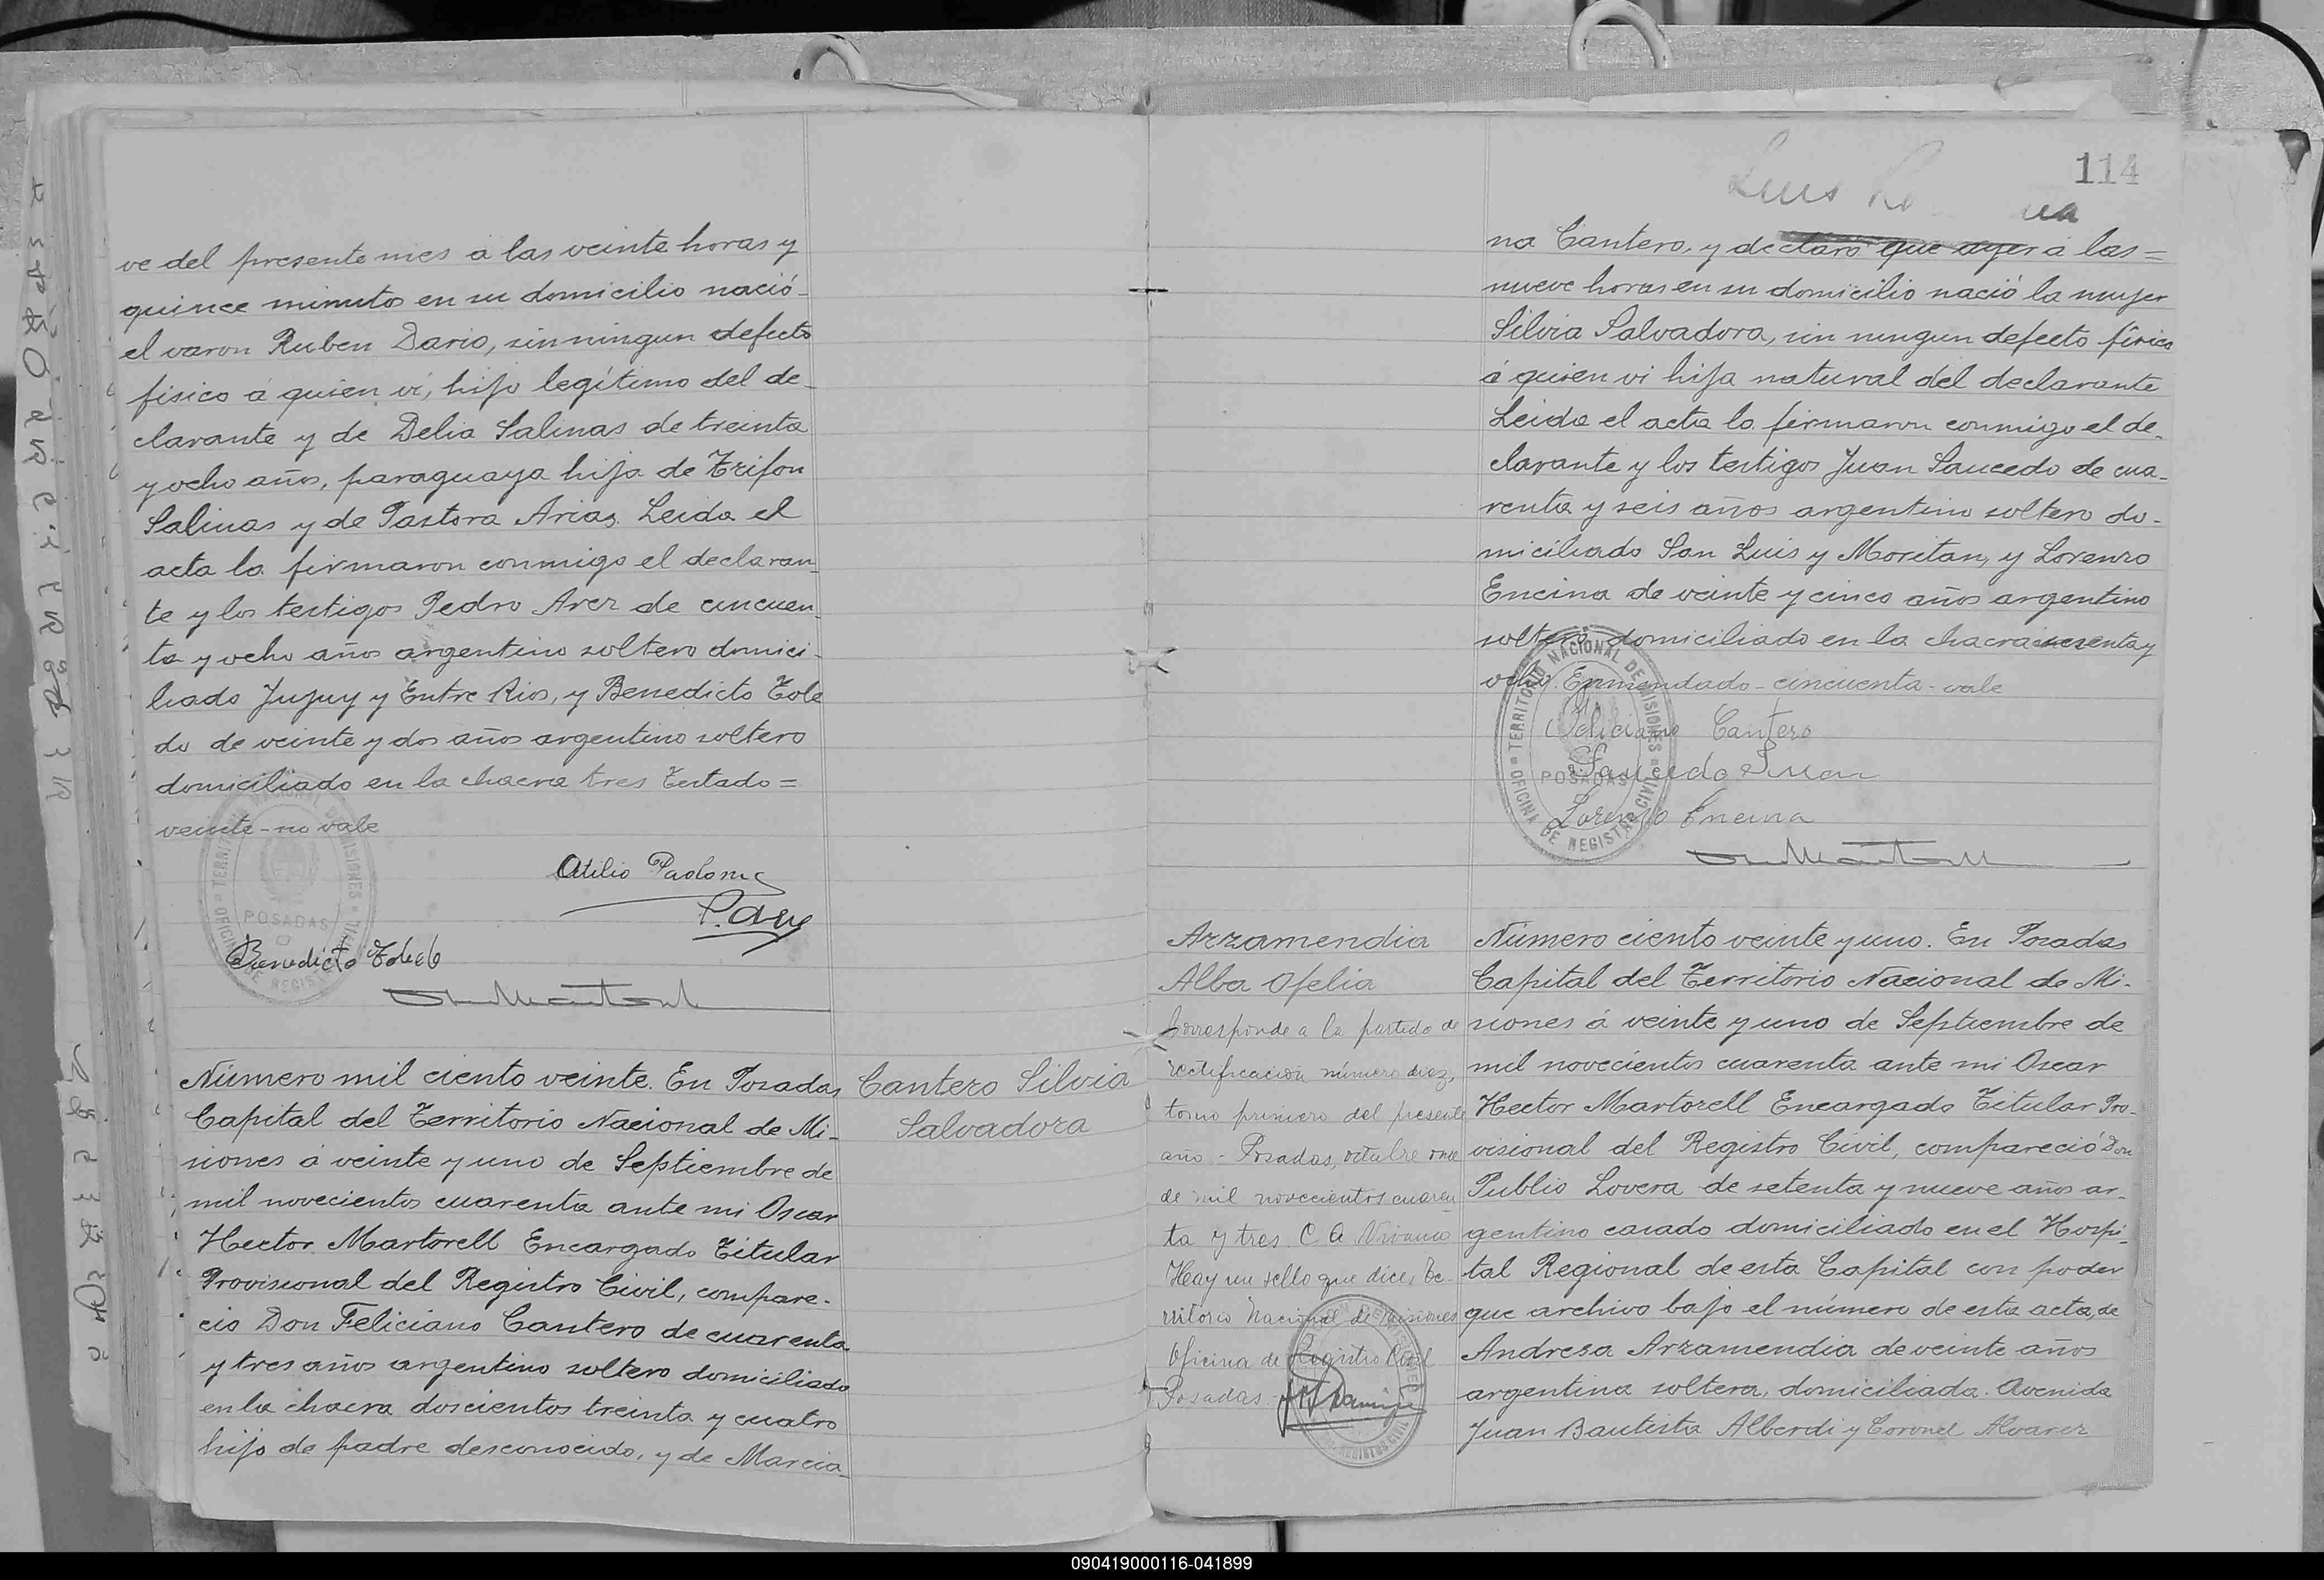 ve del presente mes á las veinte horas y
quince minutos en su domicilio nació-
el varon Ruben Dario, sin ningun defecto
fisico á quien vi, hijo legítimo del de-
clarante y de Delia Salinas de treinta
y ocho años, paraguaya hija de Trifon
Salinas y de Pastora Arias. Leida el
acta la firmaron conmigo el declaran-
te y los testigos Pedro Arez de cincuen-
ta y ocho años argentino soltero domici-
liado Jujuy y Entre Rios, y Benedicto Tole
do de veinte y dos años argentino soltero
domiciliado en la chacra tres Testado=
veinte-no vale
Atilio
Benedicto Toledo
TERRITORIO NACIONAL DE MISIONES
POSADAS
OFICINA DE REGISTRO CIVIL
Cantero Silvia
Salvadora
Número mil ciento veinte. En Posadas
Capital del Territorio Nacional de Mi-
siones á veinte y uno de Septiembre de
mil novecientos cuarenta ante mi Oscar
Hector Martorell Encargado Titular
Provisional del Registro Civil, compare-
cio Don Feliciano Cantero de cuarenta
y tres años argentino soltero domiciliado
en la chacra doscientos treinta y cuatro
hijo de padre desconocido, y de Marcia-
114
Luis
na Cantero, y declaró que ayer á las=
nueve horas en su domicilio nació la mujer
Silvia Salvadora, sin ningun defecto físico
á quien vi hija natural del declarante
Leida el acta la firmaron conmigo el de-
clarante y los testigos Juan Saucedo de cua-
renta y seis años argentino soltero do-
miciliado San Luis y Moritan, y Lorenzo
Encina de veinte y cinco años argentino
soltero domiciliado en la chacra sesenta y
ocho. Enmendado-cincuenta-vale
Feliciano Cantero
Saucedo Juan
Lorenzo Encina
TERRITORIO NACIONAL DE MISIONES
POSADAS
OFICINA DE REGISTRO CIVIL
Arzamendia
Alba Ofelia
Corresponde a la partida de
rectificación número diez,
tomo primero del presente
año.- Posadas, octubre once
de mil novecientos cuaren
ta y tres. C. A.
Hay un sello que dice, Te-
rritorio Nacional de Misiones
Oficina de Registro Civil
Posadas.-
Número ciento veinte y uno. En Posadas
Capital del Territorio Nacional de Mi-
siones á veinte y uno de Septiembre de
mil novecientos cuarenta ante mi Oscar
Hector Martorell Encargado Titular Pro-
visional del Registro Civil, compareció Don
Publio Lovera de setenta y nueve años ar-
gentino casado domiciliado en el Hospi-
tal Regional de esta Capital con poder
que archivo bajo el número de esta acta, de
Andresa Arzamendia de veinte años
argentina soltera, domiciliada. Avenida
Juan Bautista Alberdi y Coronel Alvarez
090419000116-041899